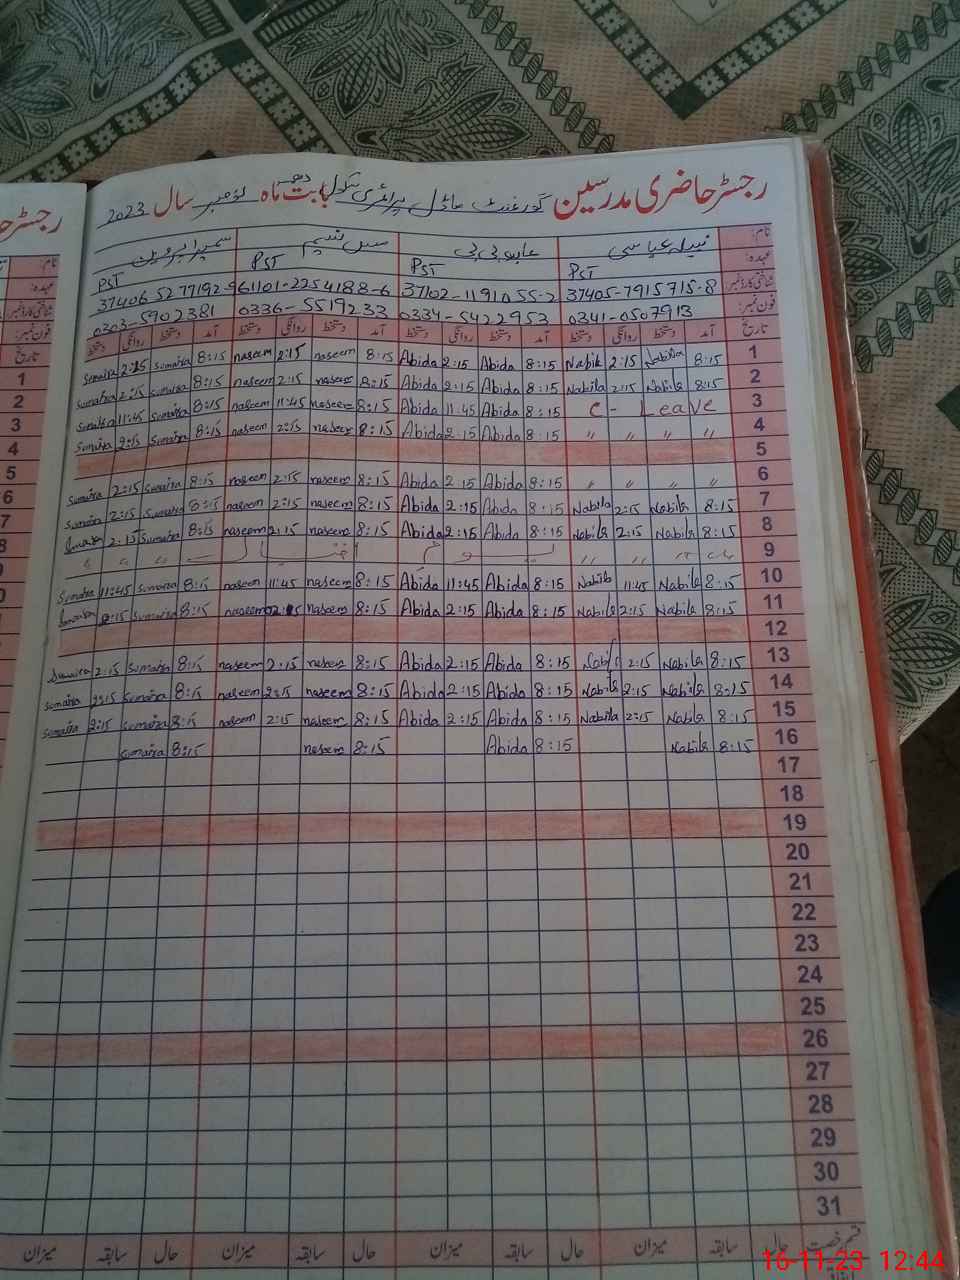 رجسٹر حاضری مدرسین گورنمنٹ ماڈل پرائمری سکول بابت ماہ نومبر سال 2023
نام: نبیلہ عباسی عابدہ بی بی نسیم سمیرا پروین
عہدہ: PST PST PST PST
شناختی کارڈ نمبر 37405-7915715-8 37102-1191055-2 61101-2254188-6 37406 5277192-9
فون نمبر: 0341-0507913 0334-5422953 0336-5519233 0303-5902381
تاریخ آمد دستخط روانگی دستخط آمد دستخط روانگی دستخط آمد دستخط روانگی دستخط آمد دستخط روانگی دستخط
Sumaira 2:15 Sumaira 8:15 naseem 2:15 naseem 8:15 Abida 2:15 Abida 8:15 Nabila 2:15 Nabila 8:15 1
Sumaira 2:15 Sumaira 8:15 naseem 2:15 naseem 8:15 Abida 2:15 Abida 8:15 Nabila 2:15 Nabila 8:15 2
Sumaira 11:45 Sumaira 8:15 naseem 11:45 naseem 8:15 Abida 11:45 Abida 8:15 C - Leave 3
Sumaira 2:15 Sumaira 8:15 naseem 2:15 naseem 8:15 Abida 2:15 Abida 8:15 〃 〃 〃 〃 4
5
Sumaira 2:15 Sumaira 8:15 naseem 2:15 naseem 8:15 Abida 2:15 Abida 8:15 〃 〃 〃 〃 6
Sumaira 2:15 Sumaira 8:15 naseem 2:15 naseem 8:15 Abida 2:15 Abida 8:15 Nabila 2:15 Nabila 8:15 7
Sumaira 2:15 Sumaira 8:15 naseem 2:15 naseem 8:15 Abida 2:15 Abida 8:15 Nabila 2:15 Nabila 8:15 8
9
Sumaira 11:45 Sumaira 8:15 naseem 11:45 naseem 8:15 Abida 11:45 Abida 8:15 Nabila 11:45 Nabila 8:15 10
Sumaira 2:15 Sumaira 8:15 naseem 02:15 naseem 8:15 Abida 2:15 Abida 8:15 Nabila 2:15 Nabila 8:15 11
12
Sumaira 2:15 Sumaira 8:15 naseem 2:15 naseem 8:15 Abida 2:15 Abida 8:15 Nabila 2:15 Nabila 8:15 13
Sumaira 2:15 Sumaira 8:15 naseem 2:15 naseem 8:15 Abida 2:15 Abida 8:15 Nabila 2:15 Nabila 8:15 14
Sumaira 2:15 Sumaira 8:15 naseem 2:15 naseem 8:15 Abida 2:15 Abida 8:15 Nabila 2:15 Nabila 8:15 15
Sumaira 8:15 naseem 8:15 Abida 8:15 Nabila 8:15 16
17
18
19
20
21
22
23
24
25
26
27
28
29
30
31
قسم رخصت حال سابقہ میزان حال سابقہ میزان حال سابقہ میزان حال سابقہ میزان
16-11-23 12:44